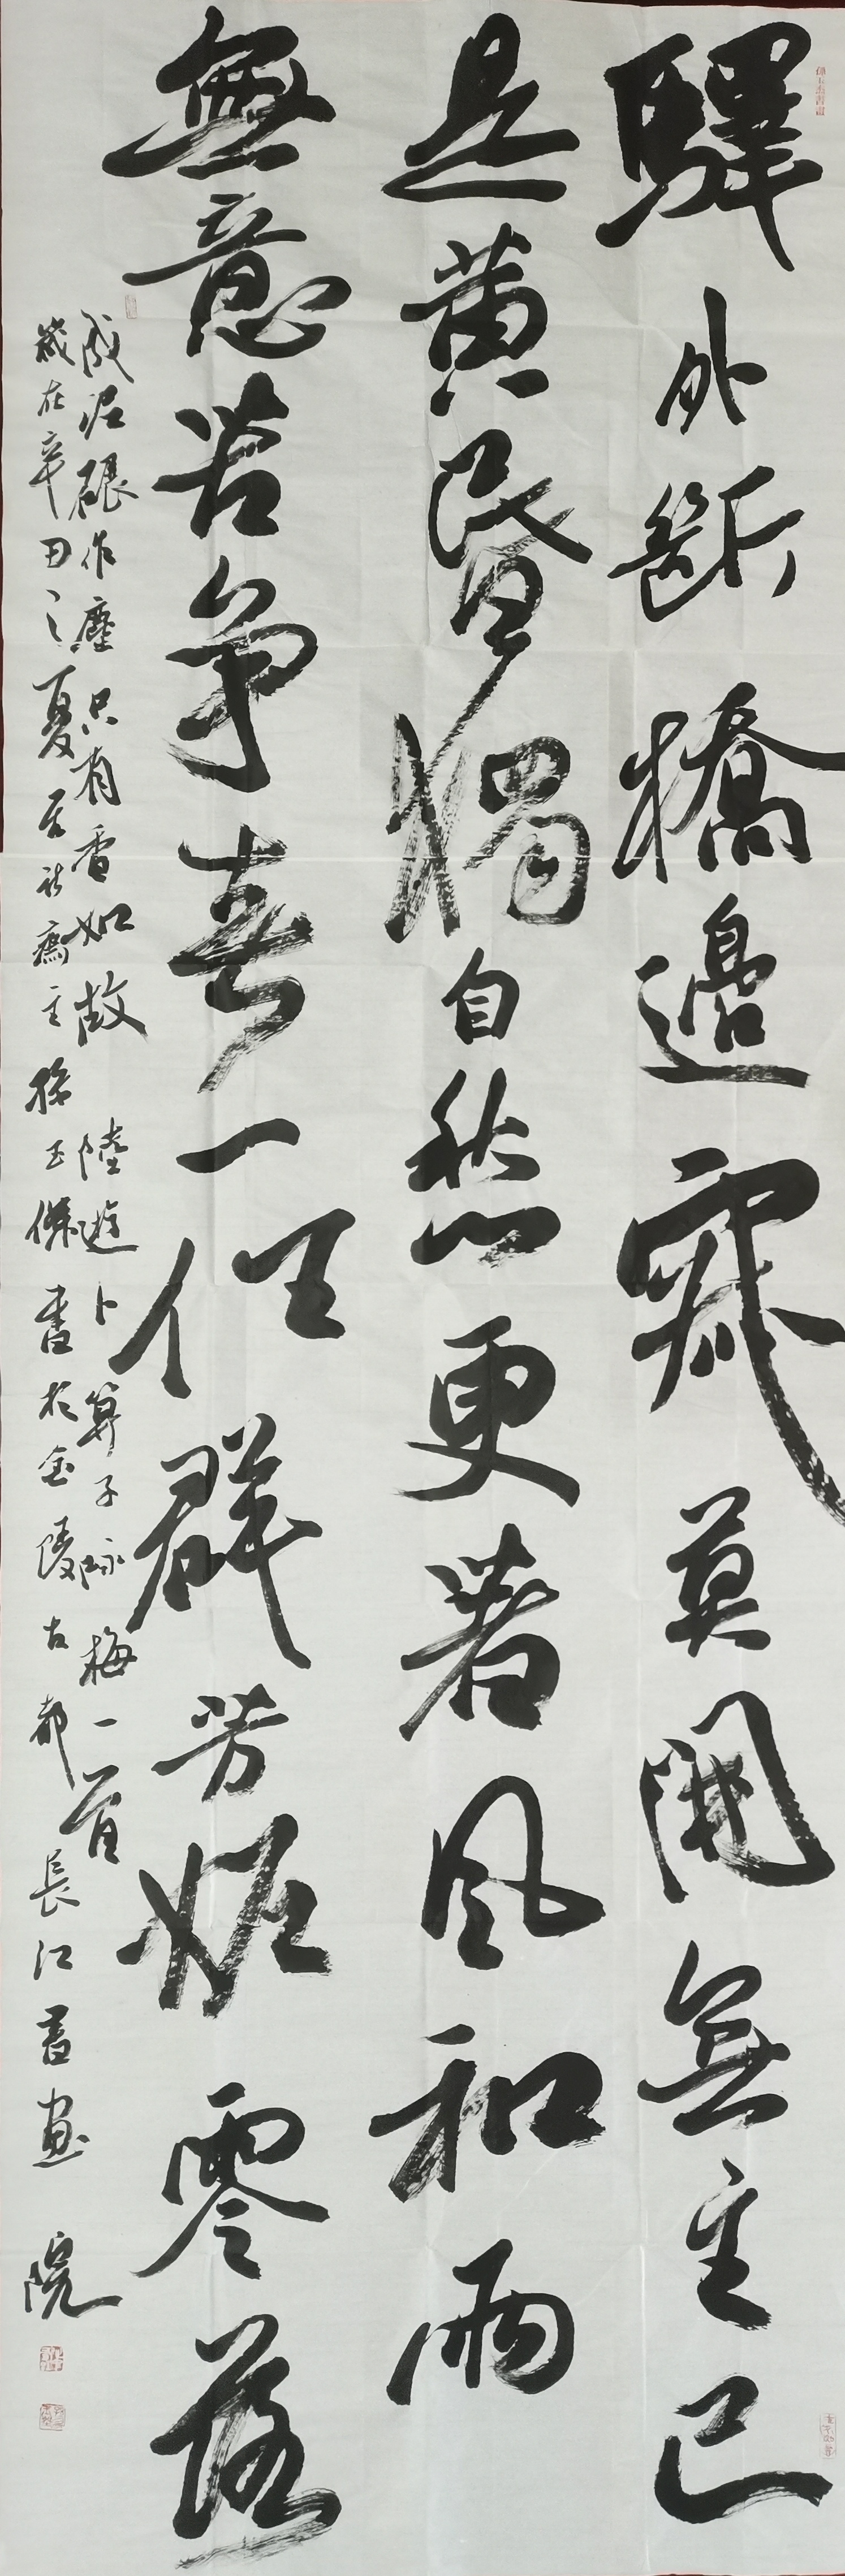 驛外斷橋邊寂莫開無主已
是黃昏獨自愁更著風和雨
無意苦争春一任群芳妒零落
成泥碾作塵只有香如故 陸遊卜算子詠梅一首
歲在辛丑之夏 齋主孫玉 書於金陵古都長江書畫院